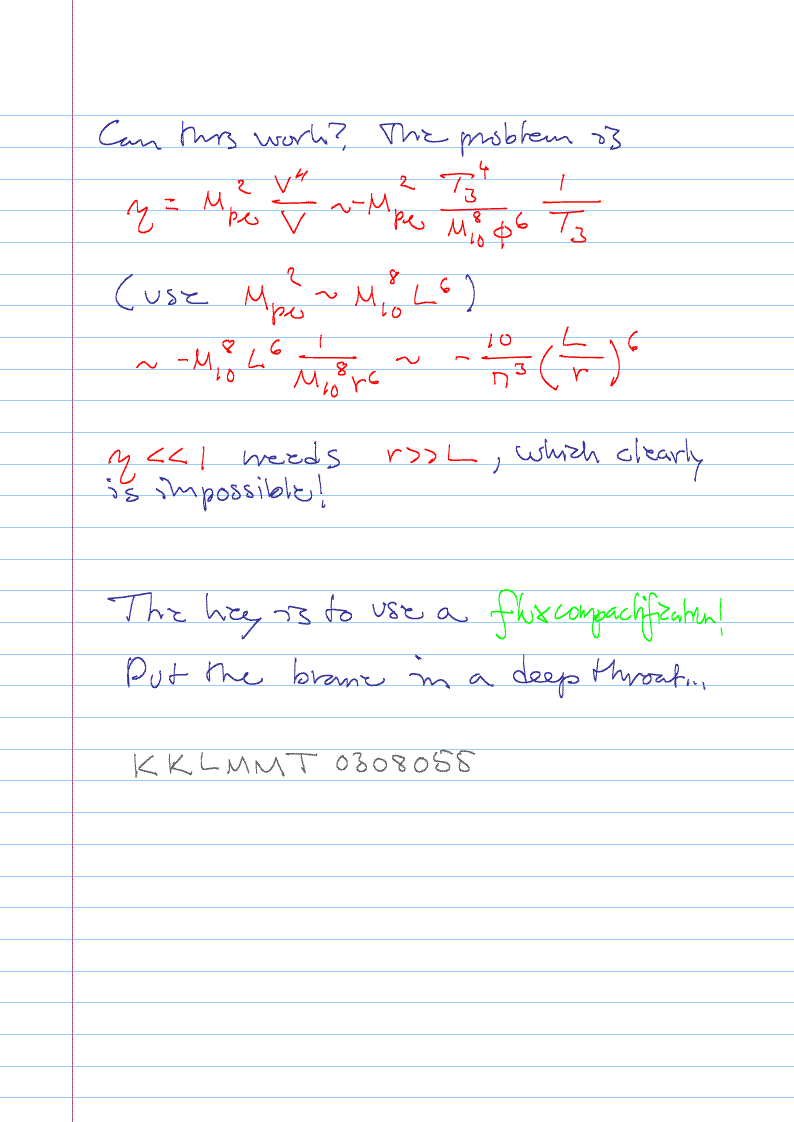 Can this work? The problem is
η = M_pl^2 V''/V ~ -M_pl^2 T_3^4/(M_10^8 φ^6) 1/T_3
(use M_pl^2 ~ M_10^8 L^6)
~ -M_10^8 L^6 1/(M_10^8 r^6) ~ -10/π^3 (L/r)^6
η << 1 needs r >> L, which clearly
is impossible!
The key is to use a flux compactification!
Put the brane in a deep throat...
KKLMMT 0308055